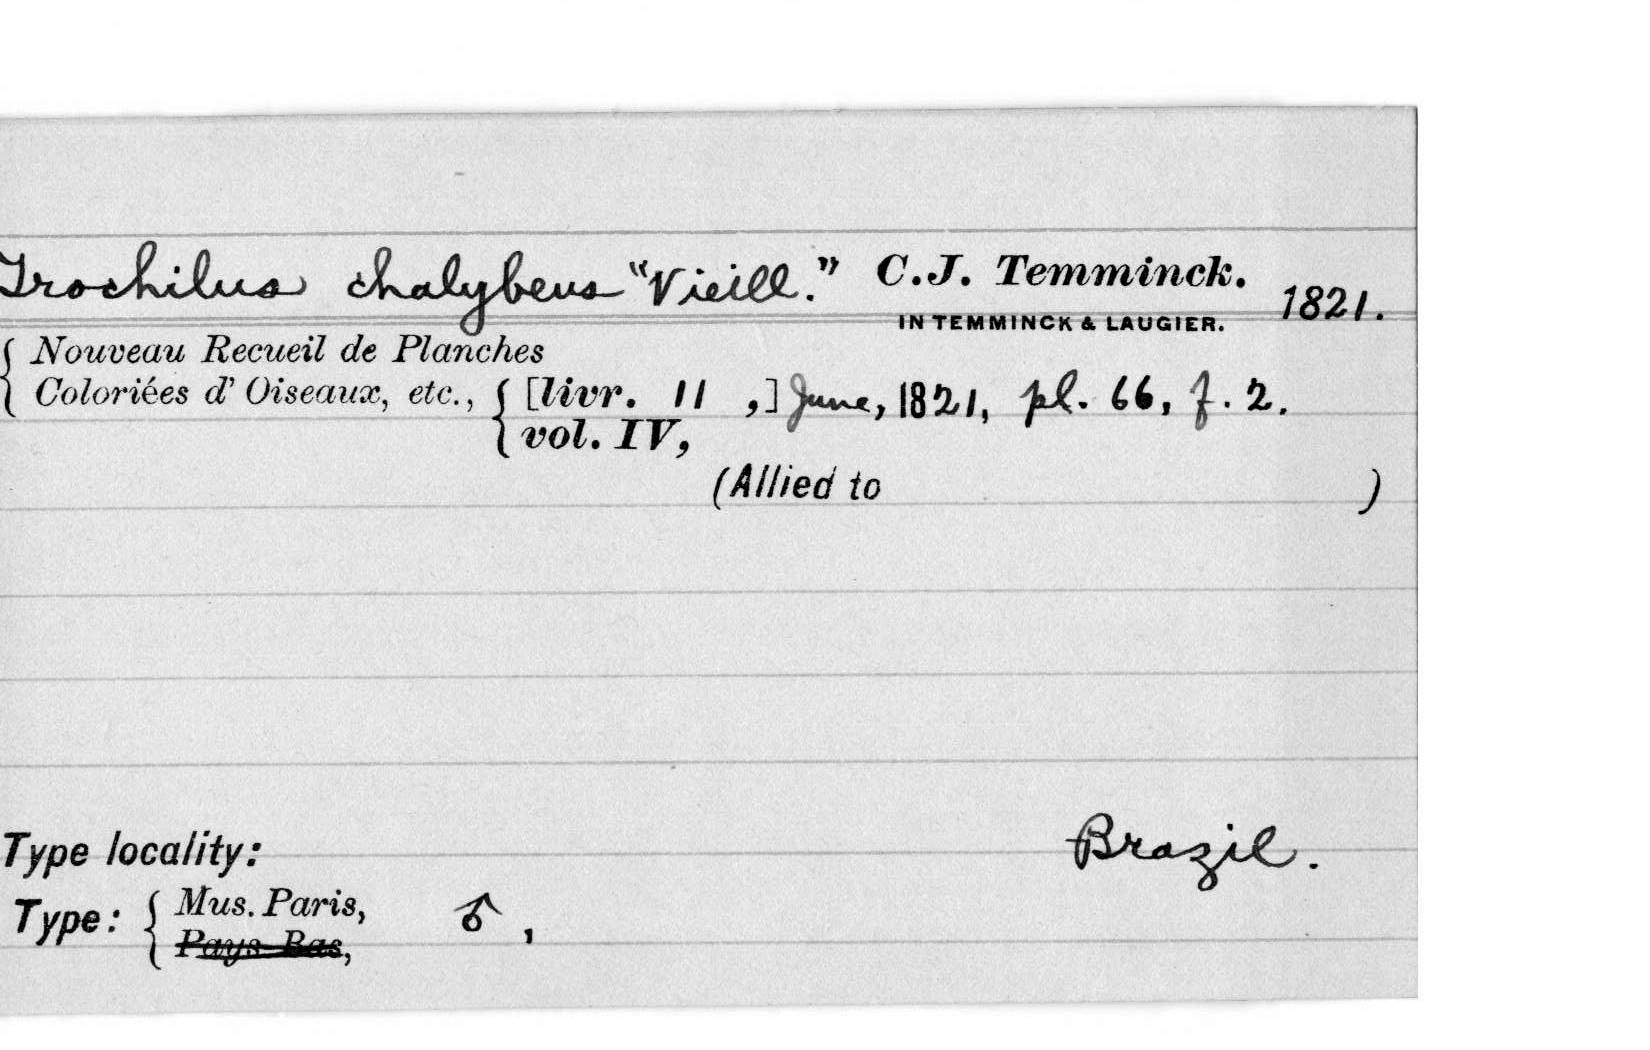 Trochilus chalybeus "Vieill." C.J. Temminck. 1821.
IN TEMMINCK & LAUGIER.
Nouveau Recueil de Planches
Coloriées d'Oiseaux, etc., [livr. 11 ,] June, 1821, pl. 66, f. 2.
vol. IV,
(Allied to )
Type locality: Brazil.
Type: Mus. Paris, ♂,
Pays-Bas,